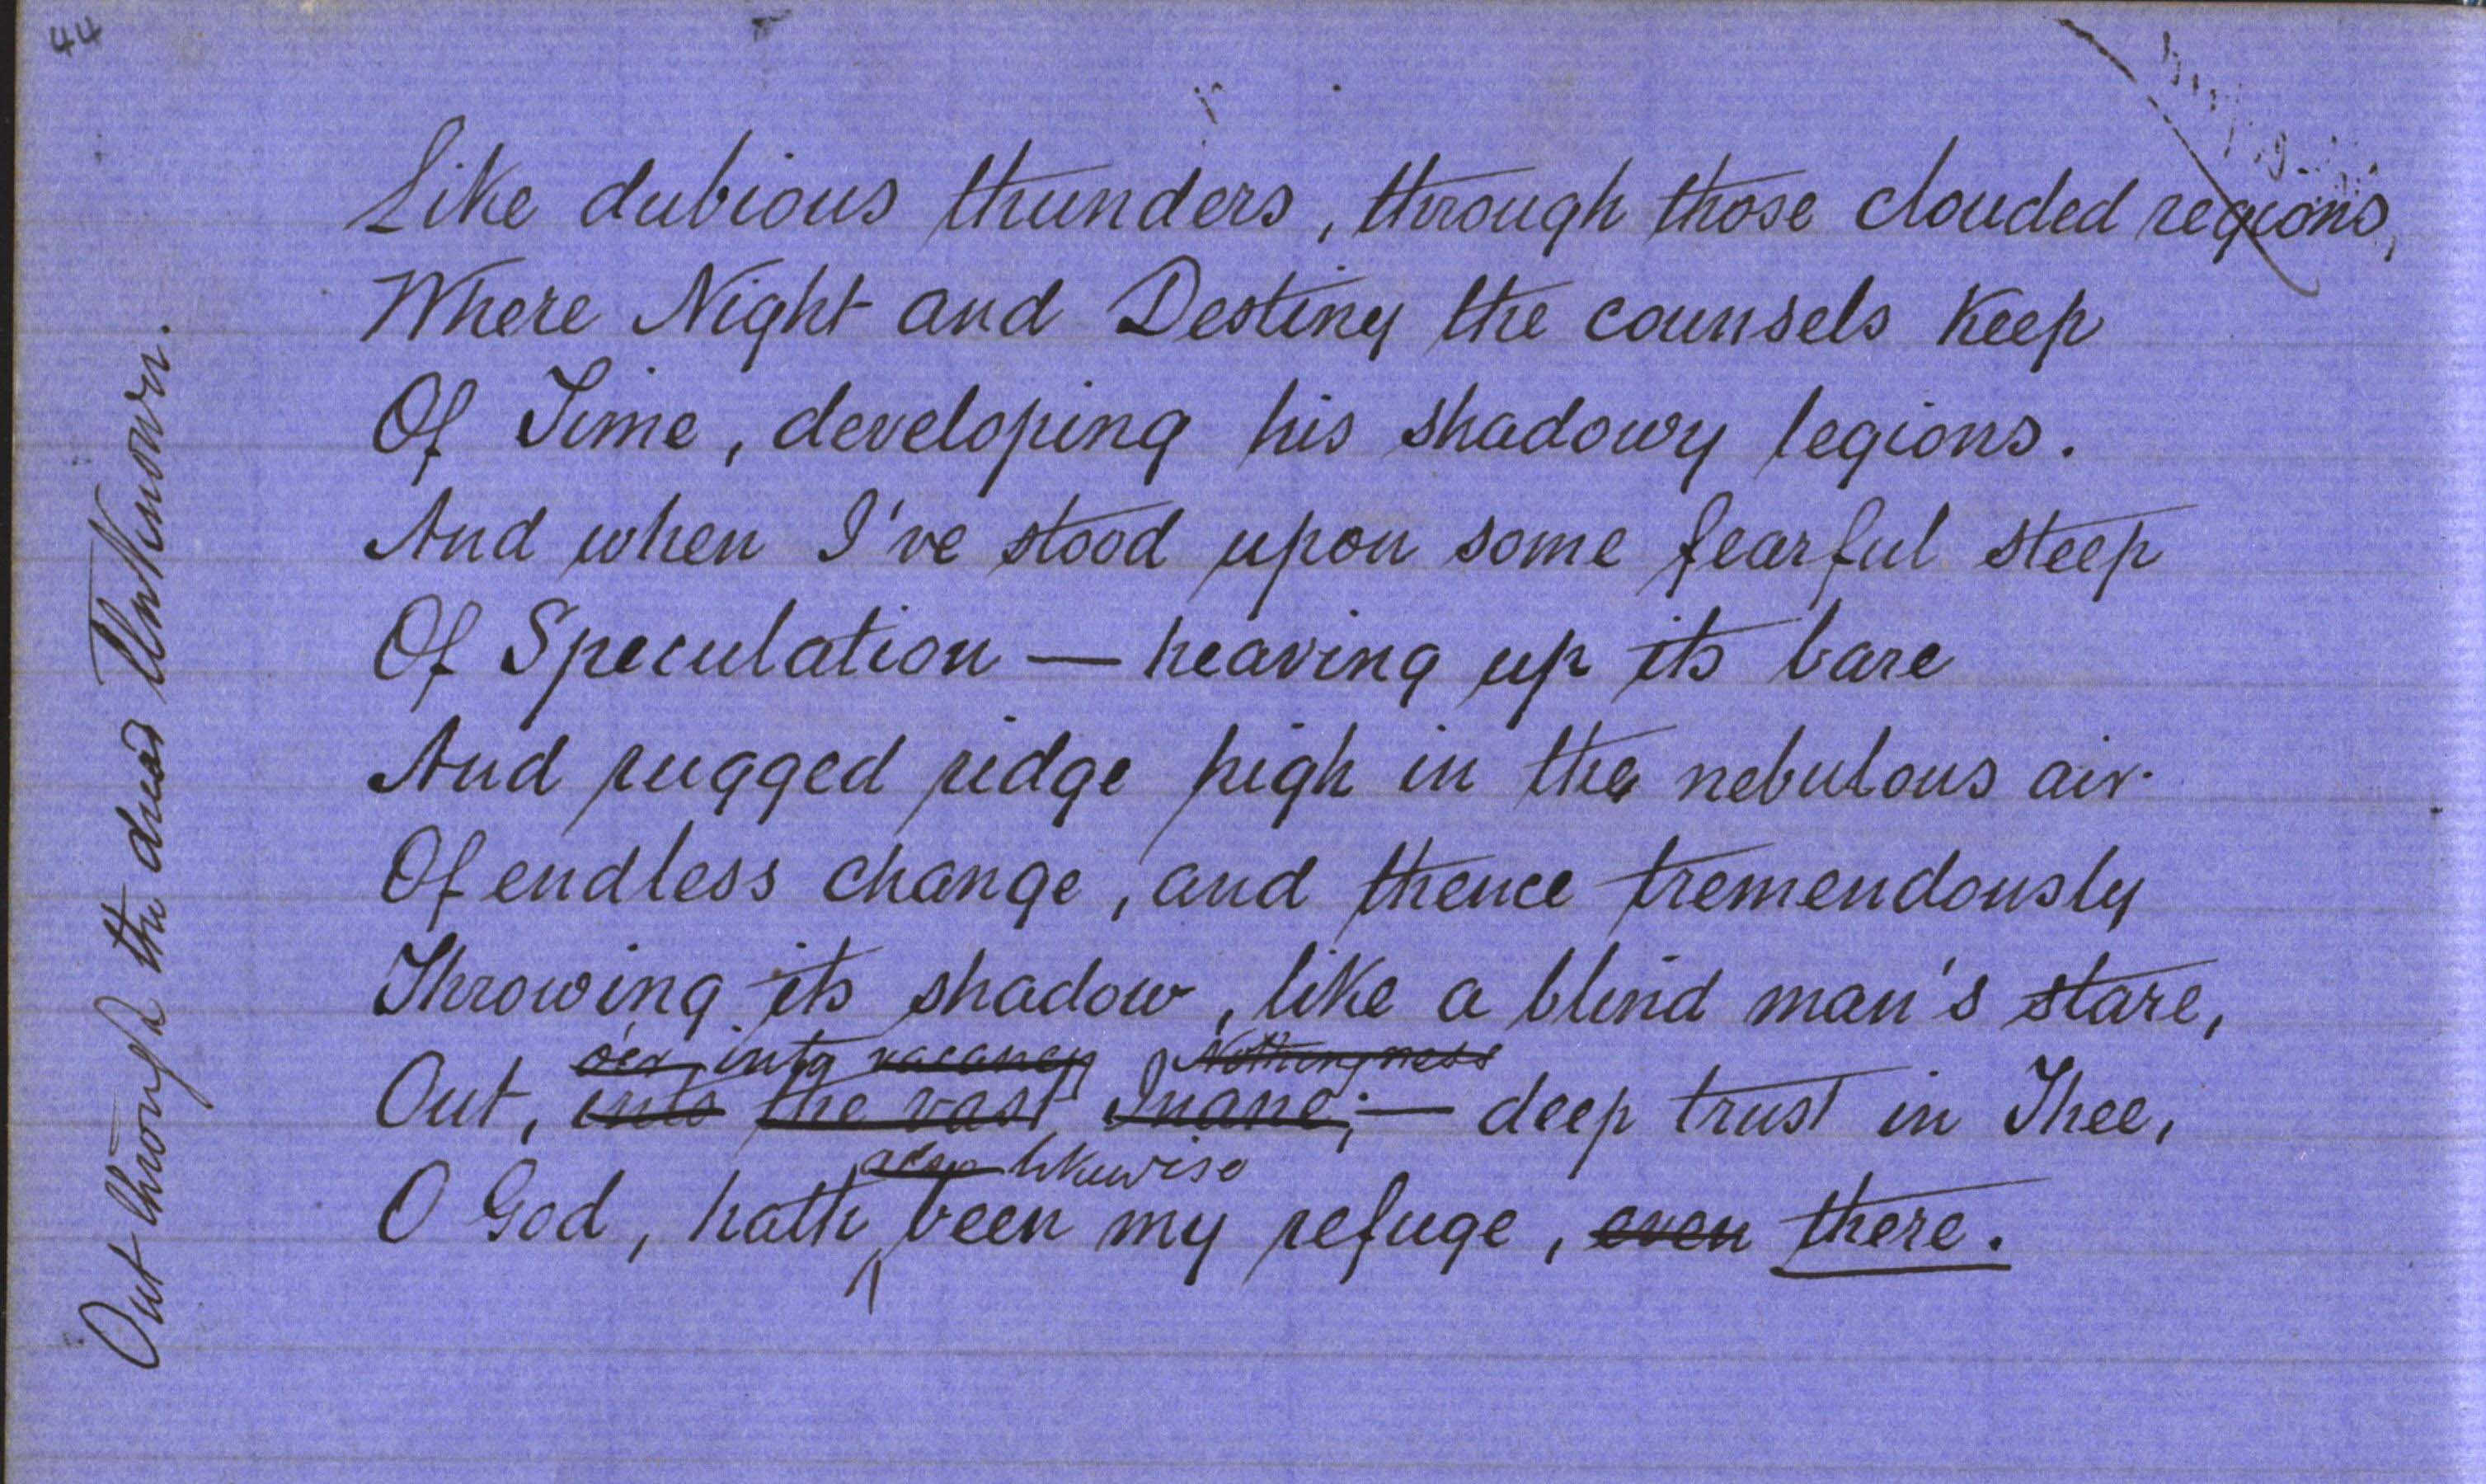 44
Like dubious thunders, through those clouded regions,
Where Night and Destiny the counsels keep
Of Time, developing his shadowy legions.
And when I've stood upon some fearful steep
Of Speculation — heaving up its bare
And rugged ridge high in the nebulous air
Of endless change, and thence tremendously
Throwing its shadow, like a blind man's stare,
o'er, into vacancy Nothingness
Out, into the vast Inane; — deep trust in Thee,
likewise
O God, hath been my refuge, even there.
Out through the dread Unknown.